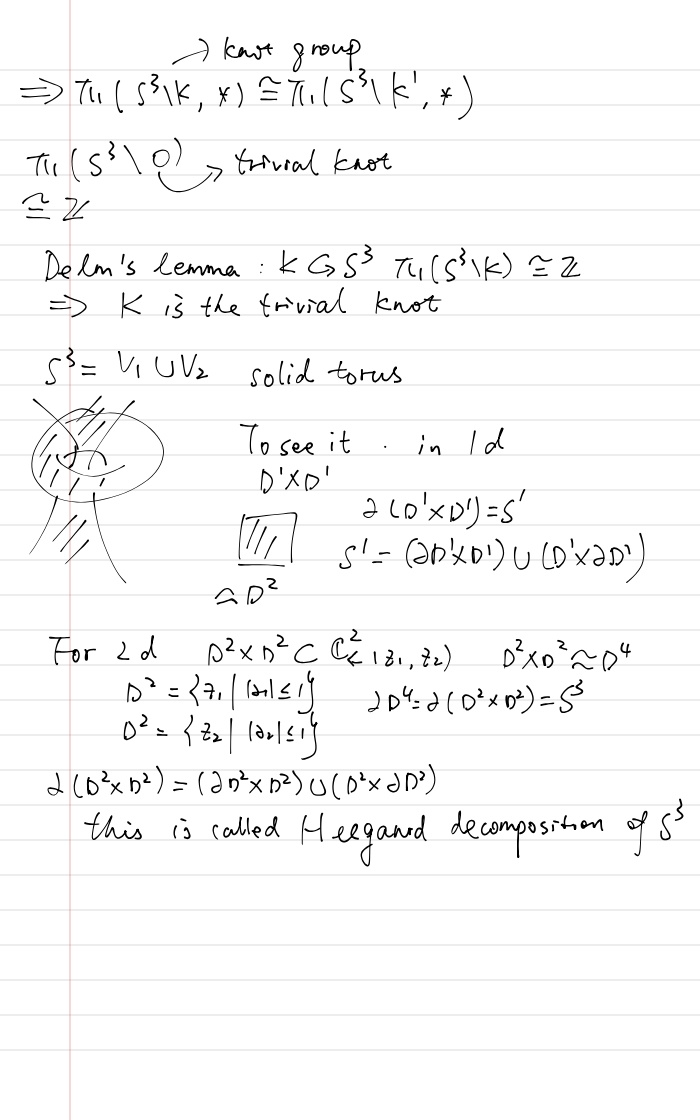 → knot group
⇒ π₁(S³\K, *) ≅ π₁(S³\K', *)
π₁(S³\O) → trivial knot
≅ ℤ
Dehn's lemma : K ↪ S³ π₁(S³\K) ≅ ℤ
⇒ K is the trivial knot
S³ = V₁ ∪ V₂ solid torus
To see it . in 1d
D¹×D¹
∂(D¹×D¹) = S¹
S¹ = (∂D¹×D¹) ∪ (D¹×∂D¹)
≈ D²
For 2d D²×D² ⊂ ℂ² < (z₁, z₂) D²×D² ≈ D⁴
D² = {z₁ | |z₁| ≤ 1} ∂D⁴ = ∂(D²×D²) = S³
D² = {z₂ | |z₂| ≤ 1}
∂(D²×D²) = (∂D²×D²) ∪ (D²×∂D²)
this is called Heegaard decomposition of S³